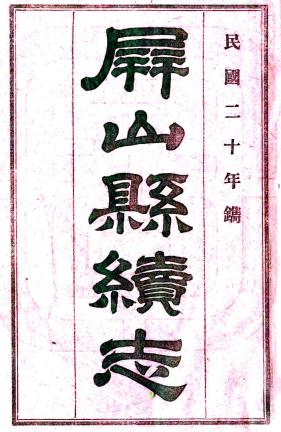 民國二十年鐫
屏山縣續志